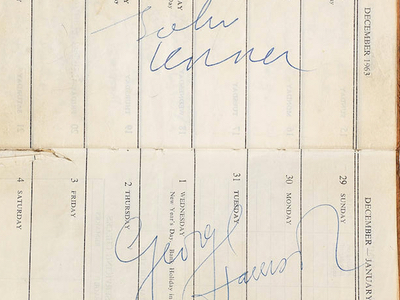 DECEMBER 1963
John
Lennon
DECEMBER — JANUARY
29 SUNDAY
30 MONDAY
31 TUESDAY
1 WEDNESDAY
New Year's Day—Bank Holiday in
2 THURSDAY
3 FRIDAY
4 SATURDAY
George
Harrison